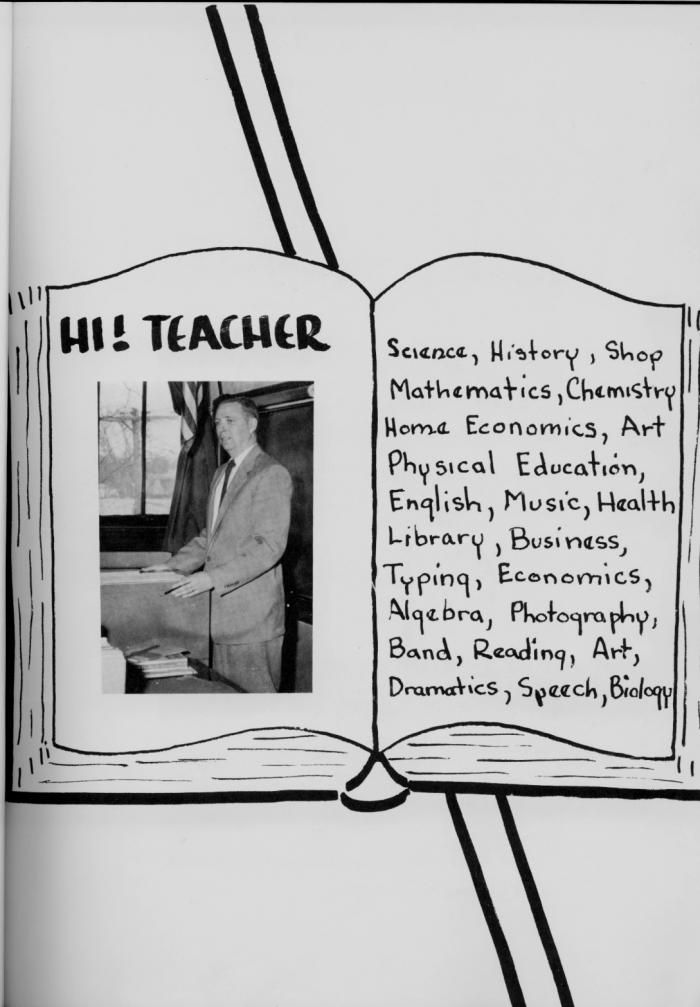 HI! TEACHER
Science, History, Shop
Mathematics, Chemistry
Home Economics, Art
Physical Education,
English, Music, Health
Library, Business,
Typing, Economics,
Algebra, Photography,
Band, Reading, Art,
Dramatics, Speech, Biology